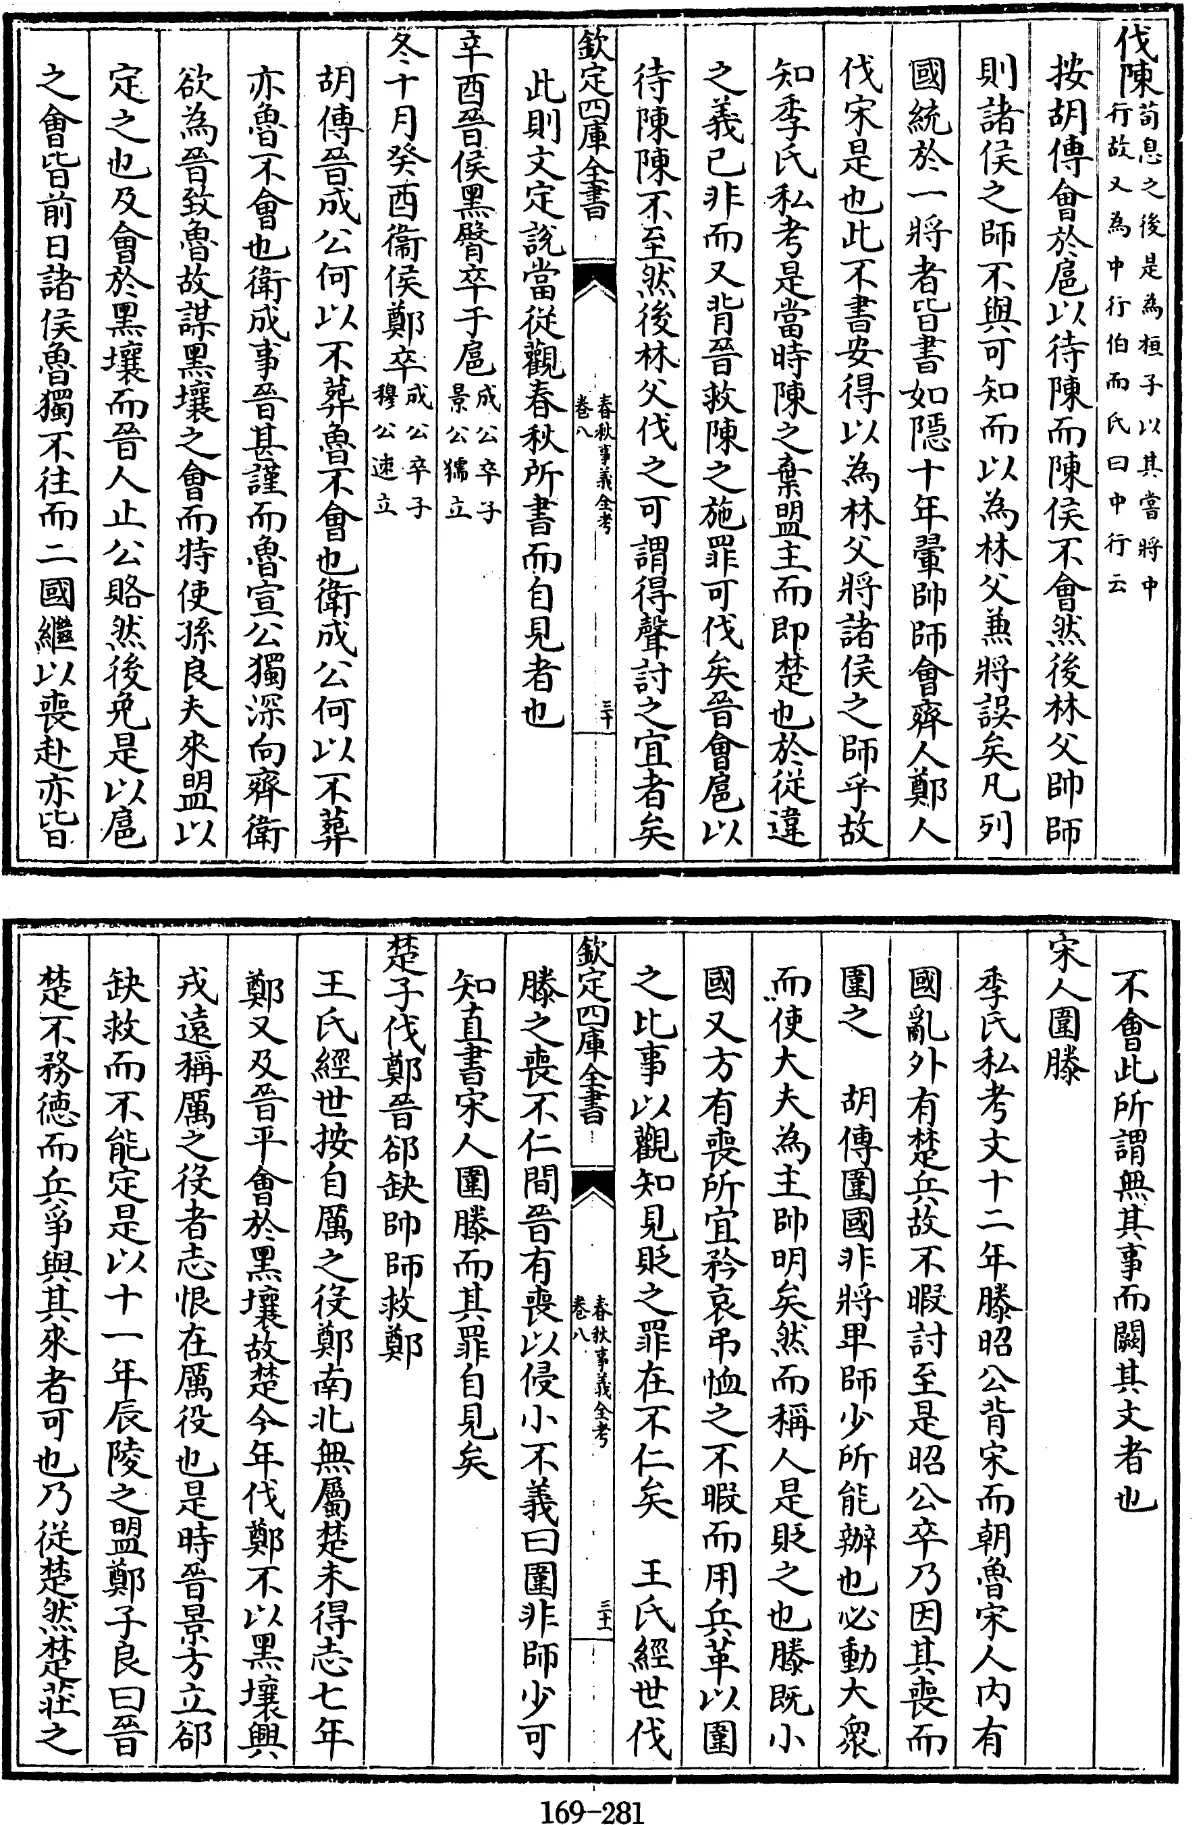 伐陳荀息之後是為桓子以其嘗將中
行故又為中行伯而氏曰中行云
按胡傳會於扈以待陳而陳侯不會然後林父帥師
則諸侯之師不與可知而以為林父兼將誤矣凡列
國統於一將者皆書如隱十年翬帥師會齊人鄭人
伐宋是也此不書安得以為林父將諸侯之師乎故
知季氏私考是當時陳之棄盟主而即楚也於從違
之義已非而又背晉救陳之施罪可伐矣晉會扈以
待陳陳不至然後林父伐之可謂得聲討之宜者矣
欽定四庫全書
春秋事義全考
卷八
三十
此則文定說當從觀春秋所書而自見者也
辛酉晉侯黑臀卒于扈成公卒子
景公獳立
冬十月癸酉衞侯鄭卒成公卒子
穆公速立
胡傳晉成公何以不葬魯不會也衛成公何以不葬
亦魯不會也衛成事晉甚謹而魯宣公獨深向齊衛
欲為晉致魯故謀黑壤之會而特使孫良夫來盟以
定之也及會於黑壤而晉人止公賂然後免是以扈
之會皆前日諸侯魯獨不往而二國繼以喪赴亦皆
不會此所謂無其事而闕其文者也
宋人圍滕
季氏私考文十二年滕昭公背宋而朝魯宋人內有
國亂外有楚兵故不暇討至是昭公卒乃因其喪而
圍之 胡傳圍國非將卑師少所能辦也必動大衆
而使大夫為主帥明矣然而稱人是貶之也滕既小
國又方有喪所宜矜哀弔恤之不暇而用兵革以圍
之比事以觀知見貶之罪在不仁矣 王氏經世伐
欽定四庫全書
春秋事義全考
卷八
三十一
滕之喪不仁間晉有喪以侵小不義曰圍非師少可
知直書宋人圍滕而其罪自見矣
楚子伐鄭晉郤缺帥師救鄭
王氏經世按自厲之役鄭南北無屬楚未得志七年
鄭又及晉平會於黑壤故楚今年伐鄭不以黑壤興
戎遠稱厲之役者志恨在厲役也是時晉景方立郤
缺救而不能定是以十一年辰陵之盟鄭子良曰晉
楚不務德而兵爭與其來者可也乃從楚然楚莊之
169-281